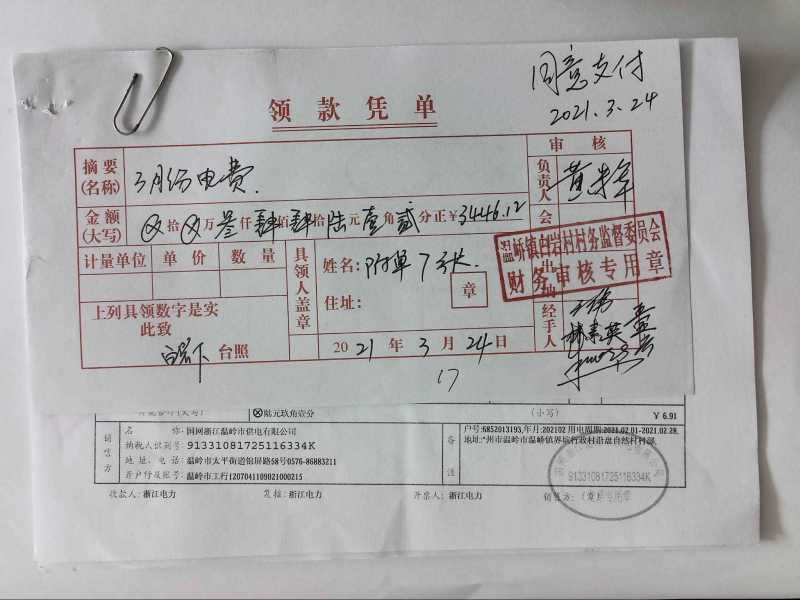 同意支付
2021.3.24
领款凭单
摘要(名称) 3月份电费. 审核
负责人
金额(大写) ⊗拾⊗万叁仟肆佰肆拾陆元壹角贰分正¥3446.12 会
计量单位 单价 数量 具领人盖章 姓名:附单7张 章
住址:
上列具领数字是实
此致
台照
2021年3月24日 经手人
温峤镇白岩村村务监督委员会
财务审核专用章
17
⊗陆元玖角壹分 (小写) ¥ 6.91
销售方 名称:国网浙江温岭市供电有限公司
纳税人识别号:91331081725116334K
地址、电话:温岭市太平街道锦屏路58号0576-86883211
开户行及账号:温岭市工行1207041109021000215
备注 户号:6852013193,年月:202102 用电周期:2021.02.01-2021.02.28,
地址:*州市温岭市温峤镇界岭行政村沿盘自然村村部
收款人:浙江电力 复核:浙江电力 开票人:浙江电力 销售方:(章)
91331081725116334K